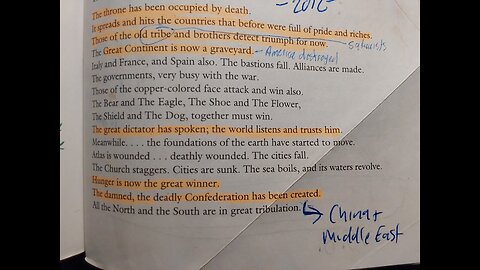 - 2016
The throne has been occupied by death.
It spreads and hits the countries that before were full of pride and riches.
Those of the old tribe and brothers detect triumph for now. - satanists
The Great Continent is now a graveyard. - America destroyed
Italy and France, and Spain also. The bastions fall. Alliances are made.
The governments, very busy with the war.
Those of the copper-colored face attack and win also.
The Bear and The Eagle, The Shoe and The Flower,
The Shield and The Dog, together must win.
The great dictator has spoken; the world listens and trusts him.
Meanwhile. . . . the foundations of the earth have started to move.
Atlas is wounded . . . deathly wounded. The cities fall.
The Church staggers. Cities are sunk. The sea boils, and its waters revolve.
Hunger is now the great winner.
The damned, the deadly Confederation has been created.
All the North and the South are in great tribulation.
China +
Middle East